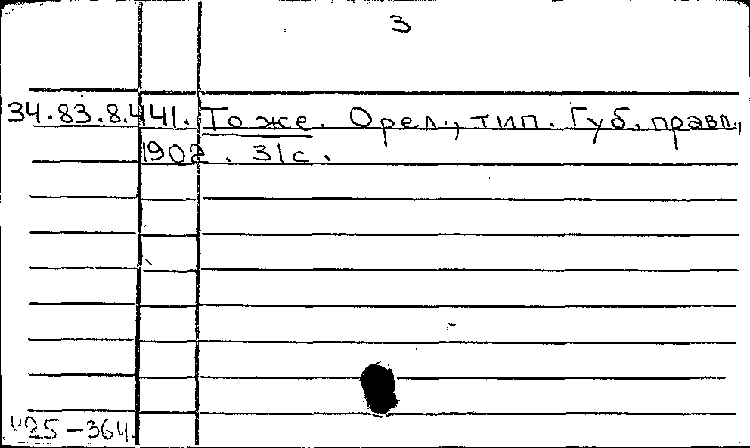 3
34.83.8.441. То же. Орел., тип. Губ. правл.,
1902. 31 с.
425-364.